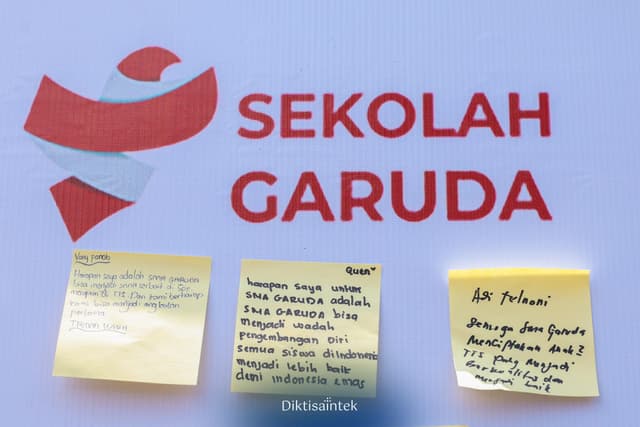 SEKOLAH
GARUDA
Harapan saya adalah SMA GARUDA
bisa menjadi SMA terbaik di
TTS. Dan kami berharap
kami bisa menjadi angkatan
pertama
Quen
harapan saya untuk
SMA GARUDA adalah
SMA GARUDA bisa
menjadi wadah
pengembangan Diri
semua siswa diIndonesia
menjadi lebih baik
demi Indonesia emas
Adi Telnoni
Semoga Sma Garuda
Menciptakan Anak2
TTS yang Menjadi
berkualitas dan
menjadi baik
Diktisaintek